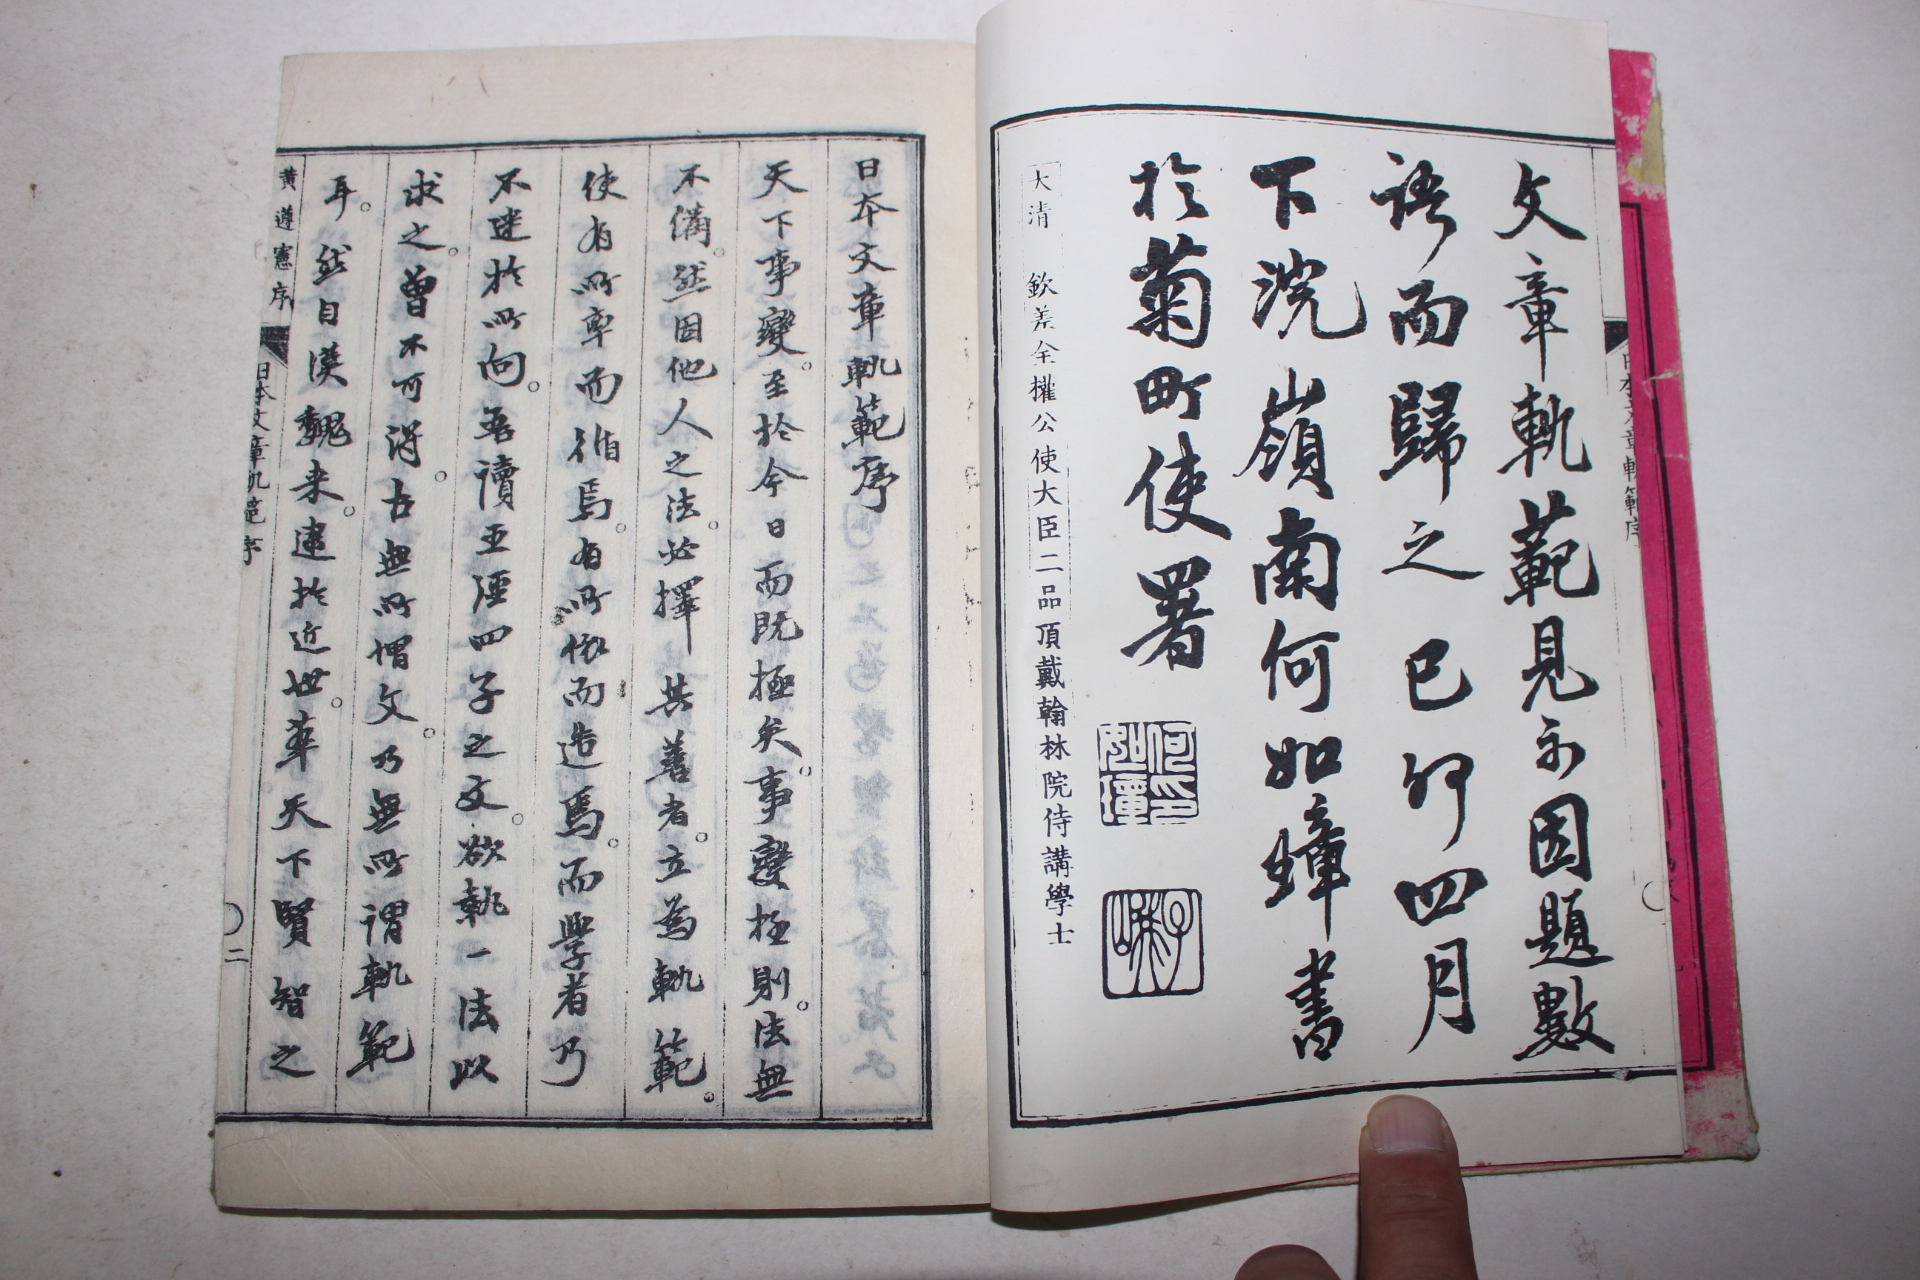 文章軌範見示因題數
語而歸之己卯四月
下浣嶺南何如璋書
於菊町使署
何如璋印
子峩
大清　欽差全權公使大臣二品頂戴翰林院侍講學士
日本文章軌範序
日本文章軌範序
天下事變。至於今日而既極矣。事變極則。法無
不備。然因他人之法。必擇其善者。立為軌範。
使有所率而循焉。有所依而造焉。而學者乃
不迷於所向。吾讀五經四子之文。欲執一法以
求之。曾不可得。古無所謂文。乃無所謂軌範
耳。然自漢魏来。逮於近世。率天下賢智之
黃遵憲序
日本文章軌範序
二